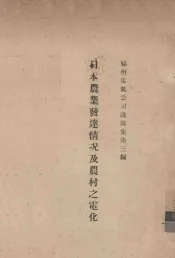 福州電氣公司淺說集第三編
日本農業發達情况及農村之電化